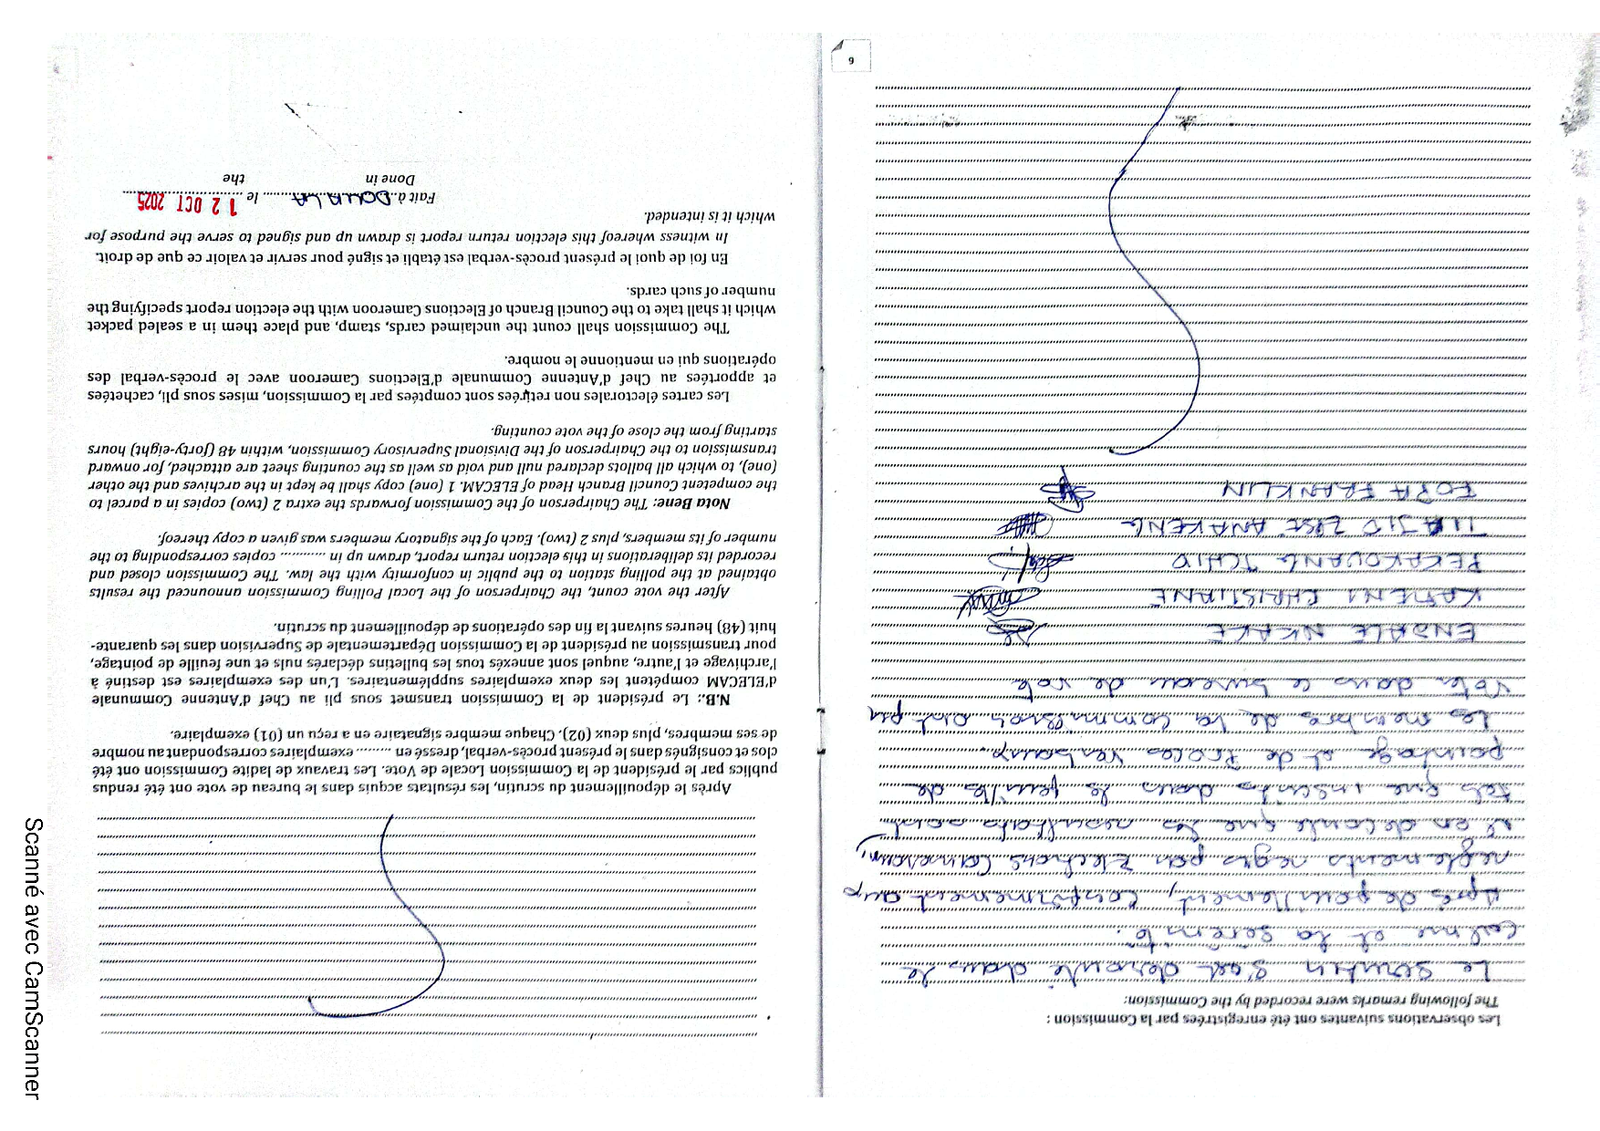 Les observations suivantes ont été enregistrées par la Commission :
The following remarks were recorded by the Commission:
Le scrutin s'est deroulé dans le
calme et la serénité.
Après depouillement, Conformement aux
reglements regis par Elections Cameroon,
il en decoule que les resultats sont
tels que inscrits dans la feuille de
pointage et de Proces Verbaux.
Les membres de la commission ont pu
voter dans ce bureau de vote
ENDALE NKAKE
KAMENI CHRISTIANE
PEKAKOUANG TCHIO
ANAKENG
FOPA FRANKLIN
6
Après le dépouillement du scrutin, les résultats acquis dans le bureau de vote ont été rendus
publics par le président de la Commission Locale de Vote. Les travaux de ladite Commission ont été
clos et consignés dans le présent procès-verbal, dressé en ......... exemplaires correspondant au nombre
de ses membres, plus deux (02). Chaque membre signataire en a reçu un (01) exemplaire.
N.B.: Le président de la Commission transmet sous pli au Chef d'Antenne Communale
d'ELECAM compétent les deux exemplaires supplémentaires. L'un des exemplaires est destiné à
l'archivage et l'autre, auquel sont annexés tous les bulletins déclarés nuls et une feuille de pointage,
pour transmission au président de la Commission Départementale de Supervision dans les quarante-
huit (48) heures suivant la fin des opérations de dépouillement du scrutin.
After the vote count, the Chairperson of the Local Polling Commission announced the results
obtained at the polling station to the public in conformity with the law. The Commission closed and
recorded its deliberations in this election return report, drawn up in ........... copies corresponding to the
number of its members, plus 2 (two). Each of the signatory members was given a copy thereof.
Nota Bene: The Chairperson of the Commission forwards the extra 2 (two) copies in a parcel to
the competent Council Branch Head of ELECAM. 1 (one) copy shall be kept in the archives and the other
(one), to which all ballots declared null and void as well as the counting sheet are attached, for onward
transmission to the Chairperson of the Divisional Supervisory Commission, within 48 (forty-eight) hours
starting from the close of the vote counting.
Les cartes électorales non retirées sont comptées par la Commission, mises sous pli, cachetées
et apportées au Chef d'Antenne Communale d'Elections Cameroon avec le procès-verbal des
opérations qui en mentionne le nombre.
The Commission shall count the unclaimed cards, stamp, and place them in a sealed packet
which it shall take to the Council Branch of Elections Cameroon with the election report specifying the
number of such cards.
En foi de quoi le présent procès-verbal est établi et signé pour servir et valoir ce que de droit.
In witness whereof this election return report is drawn up and signed to serve the purpose for
which it is intended.
Fait à DOUALA le 12 OCT 2025
Done in the
Scanné avec CamScanner